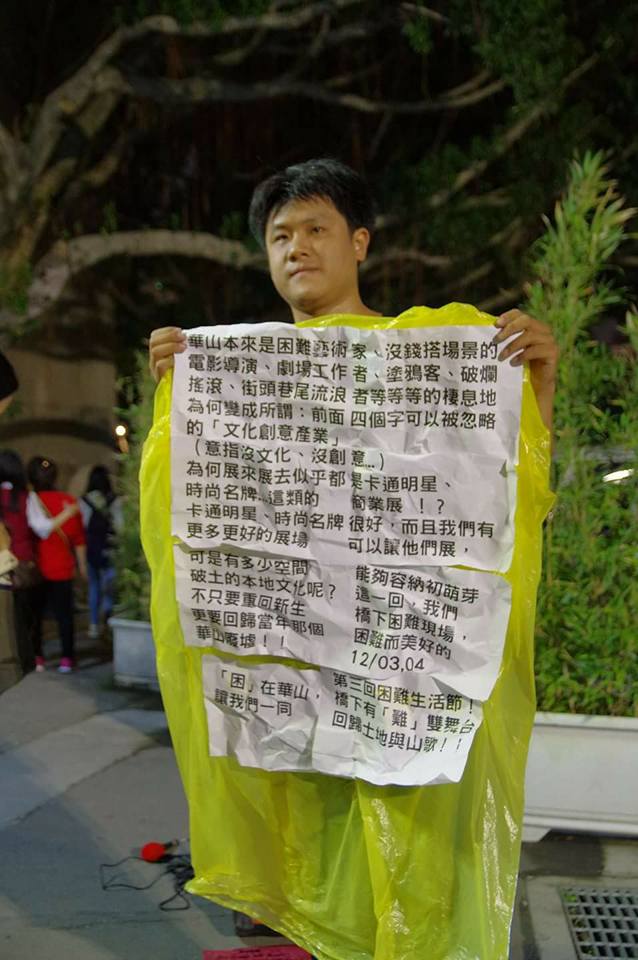 華山本來是困難藝術家、沒錢搭場景的
電影導演、劇場工作者、塗鴉客、破爛
搖滾、街頭巷尾流浪者等等等的棲息地
為何變成所謂：前面四個字可以被忽略
的「文化創意產業」
（意指沒文化、沒創意...）
為何展來展去似乎都是卡通明星、
時尚名牌...這類的商業展！？
卡通明星、時尚名牌很好，而且我們有
更多更好的展場可以讓他們展，
可是有多少空間能夠容納初萌芽
破土的本地文化呢？這一回，我們
不只要重回新生橋下困難現場，
更要回歸當年那個困難而美好的
華山廢墟！！12/03,04
第三回困難生活節！
「困」在華山，橋下有「難」雙舞台
讓我們一同回歸土地與山歌！！